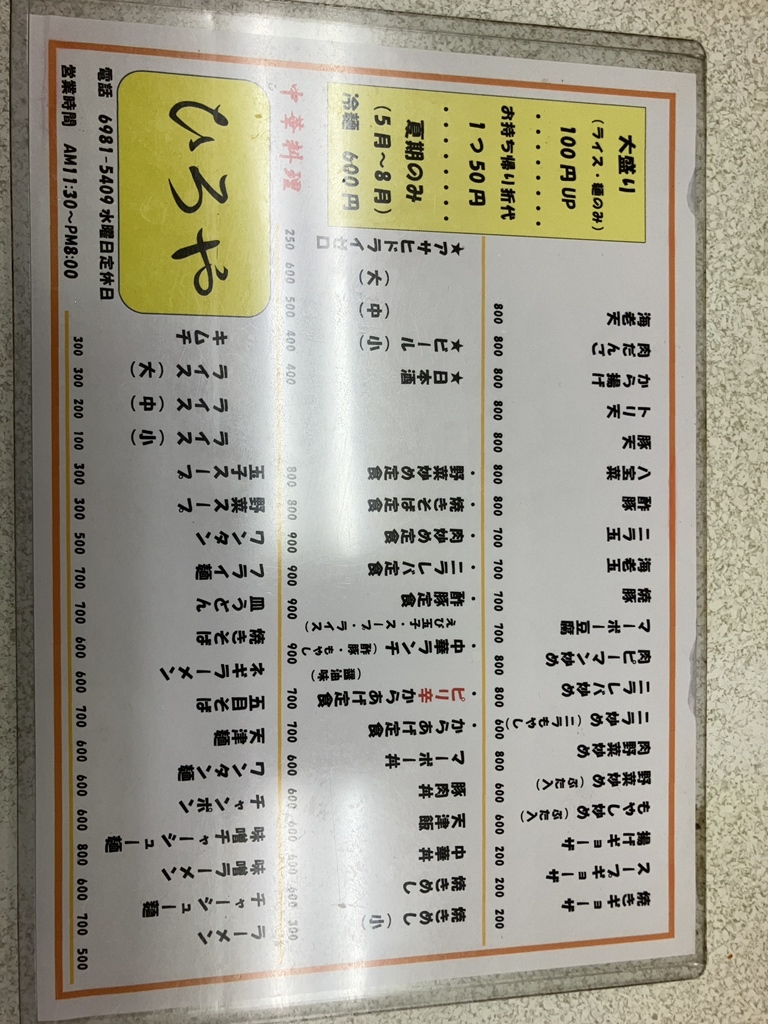 焼きギョーザ 200
スープギョーザ 200
揚げギョーザ 200
もやし炒め（ぶた入） 600
野菜炒め（ぶた入） 600
肉野菜炒め 800
ニラ炒め（ニラもやし） 600
ニラレバ炒め 800
肉ピーマン炒め 800
マーボー豆腐 700
焼豚 700
海老玉 700
ニラ玉 700
酢豚 800
八宝菜 800
豚天 800
トリ天 800
から揚げ 800
肉だんご 800
海老天 800
焼きめし（小） 300
焼きめし 600
中華丼 600
天津飯 600
豚肉丼 600
マーボー丼 600
・からあげ定食 700
・ピリ辛からあげ定食（醤油味） 700
・中華ランチ（酢豚・もやし えび玉子・スープ・ライス） 900
・酢豚定食 900
・ニラレバ定食 900
・肉炒め定食 900
・焼きそば定食 800
・野菜炒め定食 800
★日本酒 400
★ビール（小） 400
（中） 500
（大） 600
★アサヒドライゼロ 250
ラーメン 500
チャーシュー麺 700
味噌ラーメン 600
味噌チャーシュー麺 800
チャンポン 600
ワンタン麺 600
天津麺 600
五目そば 700
ネギラーメン 600
焼きそば 600
皿うどん 700
フライ麺 700
ワンタン 500
野菜スープ 300
玉子スープ 300
ライス（小） 100
ライス（中） 200
ライス（大） 300
キムチ 300
大盛り
（ライス・麺のみ）
100円UP
・・・・・・・・
お持ち帰り折代
1つ50円
・・・・・・・・
夏期のみ
（5月～8月）
冷麺 600円
中華料理
ひろや
電話 6981-5409 水曜日定休日
営業時間 AM11:30～PM8:00